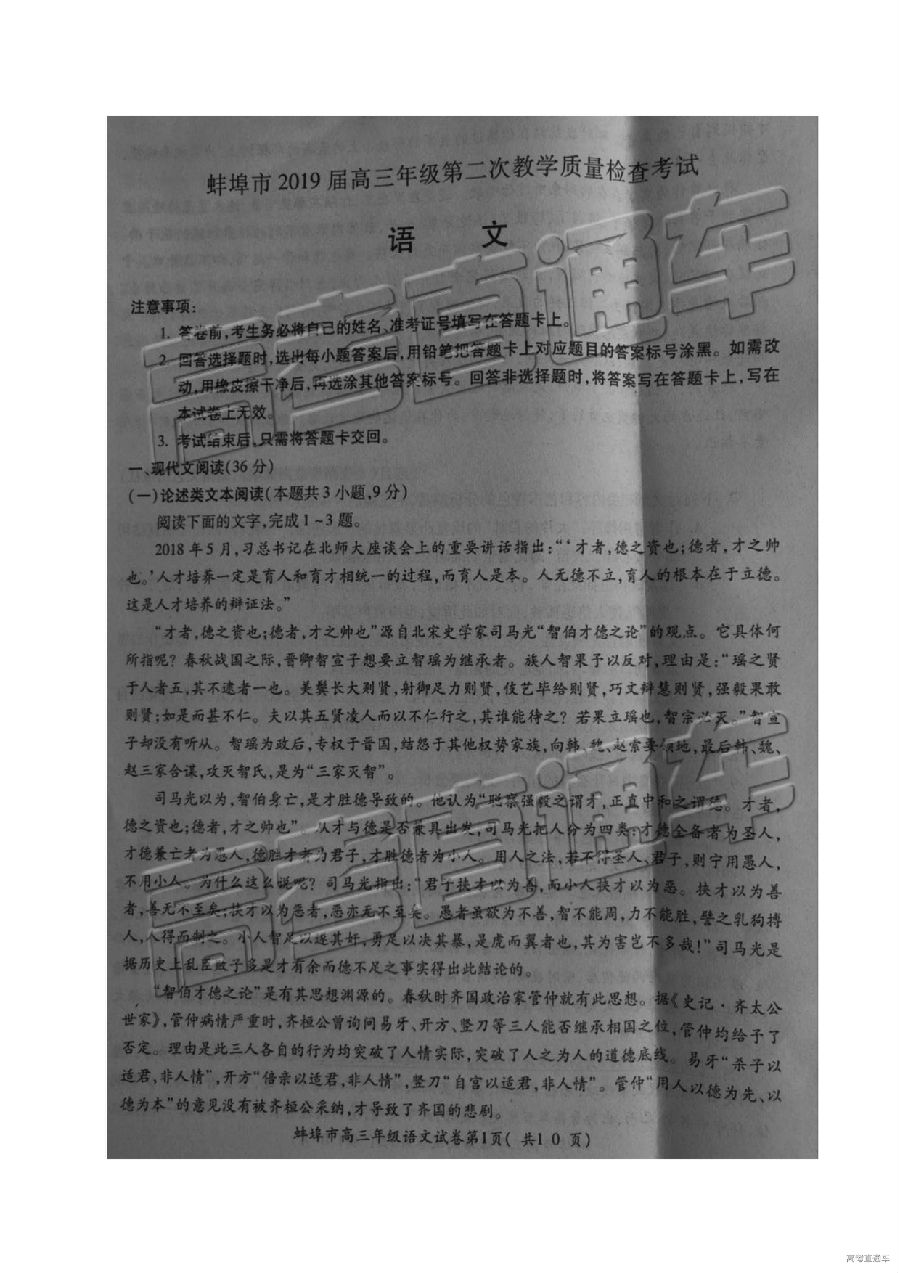 蚌埠市2019届高三年级第二次教学质量检查考试
语 文
注意事项：
1. 答卷前,考生务必将自己的姓名、准考证号填写在答题卡上。
2. 回答选择题时,选出每小题答案后,用铅笔把答题卡上对应题目的答案标号涂黑。如需改
动,用橡皮擦干净后,再选涂其他答案标号。回答非选择题时,将答案写在答题卡上,写在
本试卷上无效。
3. 考试结束后,只需将答题卡交回。
一、现代文阅读(36分)
(一)论述类文本阅读(本题共3小题,9分)
阅读下面的文字,完成1~3题。
2018年5月,习总书记在北师大座谈会上的重要讲话指出:“‘才者,德之资也;德者,才之帅
也。’人才培养一定是育人和育才相统一的过程,而育人是本。人无德不立,育人的根本在于立德。
这是人才培养的辩证法。”
“才者,德之资也;德者,才之帅也”源自北宋史学家司马光“智伯才德之论”的观点。它具体何
所指呢?春秋战国之际,晋卿智宣子想要立智瑶为继承者。族人智果予以反对,理由是:“瑶之贤
于人者五,其不逮者一也。美鬓长大则贤,射御足力则贤,伎艺毕给则贤,巧文辩慧则贤,强毅果敢
则贤;如是而甚不仁。夫以其五贤凌人而以不仁行之,其谁能待之?若果立瑶也,智宗必灭。”智宣
子却没有听从。智瑶为政后,专权于晋国,结怨于其他权势家族,向韩、魏、赵索要领地,最后韩、魏、
赵三家合谋,攻灭智氏,是为“三家灭智”。
司马光以为,智伯身亡,是才胜德导致的。他认为“聪察强毅之谓才,正直中和之谓德。才者,
德之资也;德者,才之帅也”。从才与德是否兼具出发,司马光把人分为四类:才德全备者为圣人,
才德兼亡者为愚人,德胜才者为君子,才胜德者为小人。用人之法,若不得圣人、君子,则宁用愚人,
不用小人。为什么这么说呢?司马光指出:“君子挟才以为善,而小人挟才以为恶。挟才以为善
者,善无不至矣;挟才以为恶者,恶亦无不至矣。愚者虽欲为不善,智不能周,力不能胜,譬之乳狗搏
人,人得而制之。小人智足以遂其奸,勇足以决其暴,是虎而翼者也,其为害岂不多哉!”司马光是
据历史上乱臣败子多是才有余而德不足之事实得出此结论的。
“智伯才德之论”是有其思想渊源的。春秋时齐国政治家管仲就有此思想。据《史记·齐太公
世家》,管仲病情严重时,齐桓公曾询问易牙、开方、竖刀等三人能否继承相国之位,管仲均给予了
否定。理由是此三人各自的行为均突破了人情实际,突破了人之为人的道德底线。易牙“杀子以
适君,非人情”,开方“倍亲以适君,非人情”,竖刀“自宫以适君,非人情”。管仲“用人以德为先、以
德为本”的意见没有被齐桓公采纳,才导致了齐国的悲剧。
蚌埠市高三年级语文试卷第1页( 共1 0 页)
高考直通车
高考直通车
高考直通车